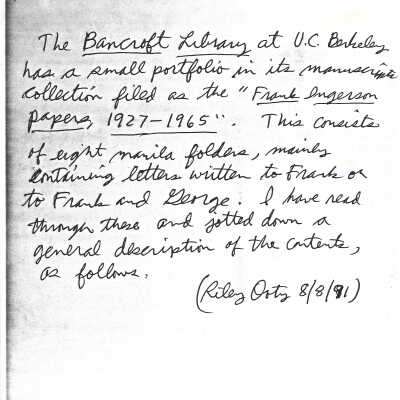 The Bancroft Library at U.C. Berkeley
has a small portfolio in its manuscripts
collection filed as the "Frank Ingerson
Papers, 1927-1965". This consists
of eight manila folders, mainly
containing letters written to Frank or
to Frank and George. I have read
through these and jotted down a
general description of the contents,
as follows.
(Riley Doty 8/8/91)